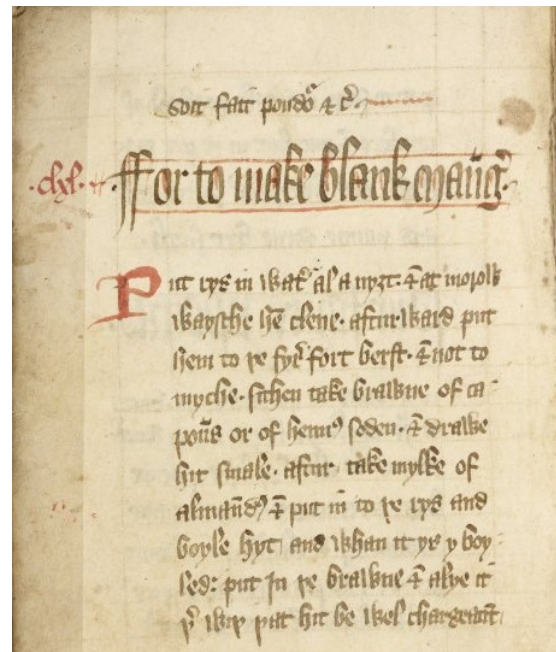 soit fait poudr̃ & c̃
·cxl· ffor to make blank mãng̃·
Put rys in wat̃ al a nyzt· & at morow
waysche hẽ clene· aftur ward put
hem to þe fyr̃ fort berst· & not to
myche· sithen take brawne of ca-
poũs or of henn᷒ soden· & drawe
hit smale· aftur take mylke of
almãd᷒ & put in to þe rys and
boyle hyt and whan it ys y boy
led: put In þe brawne & alye it
þ̃ wiþ þat hit be wel chargeãt·